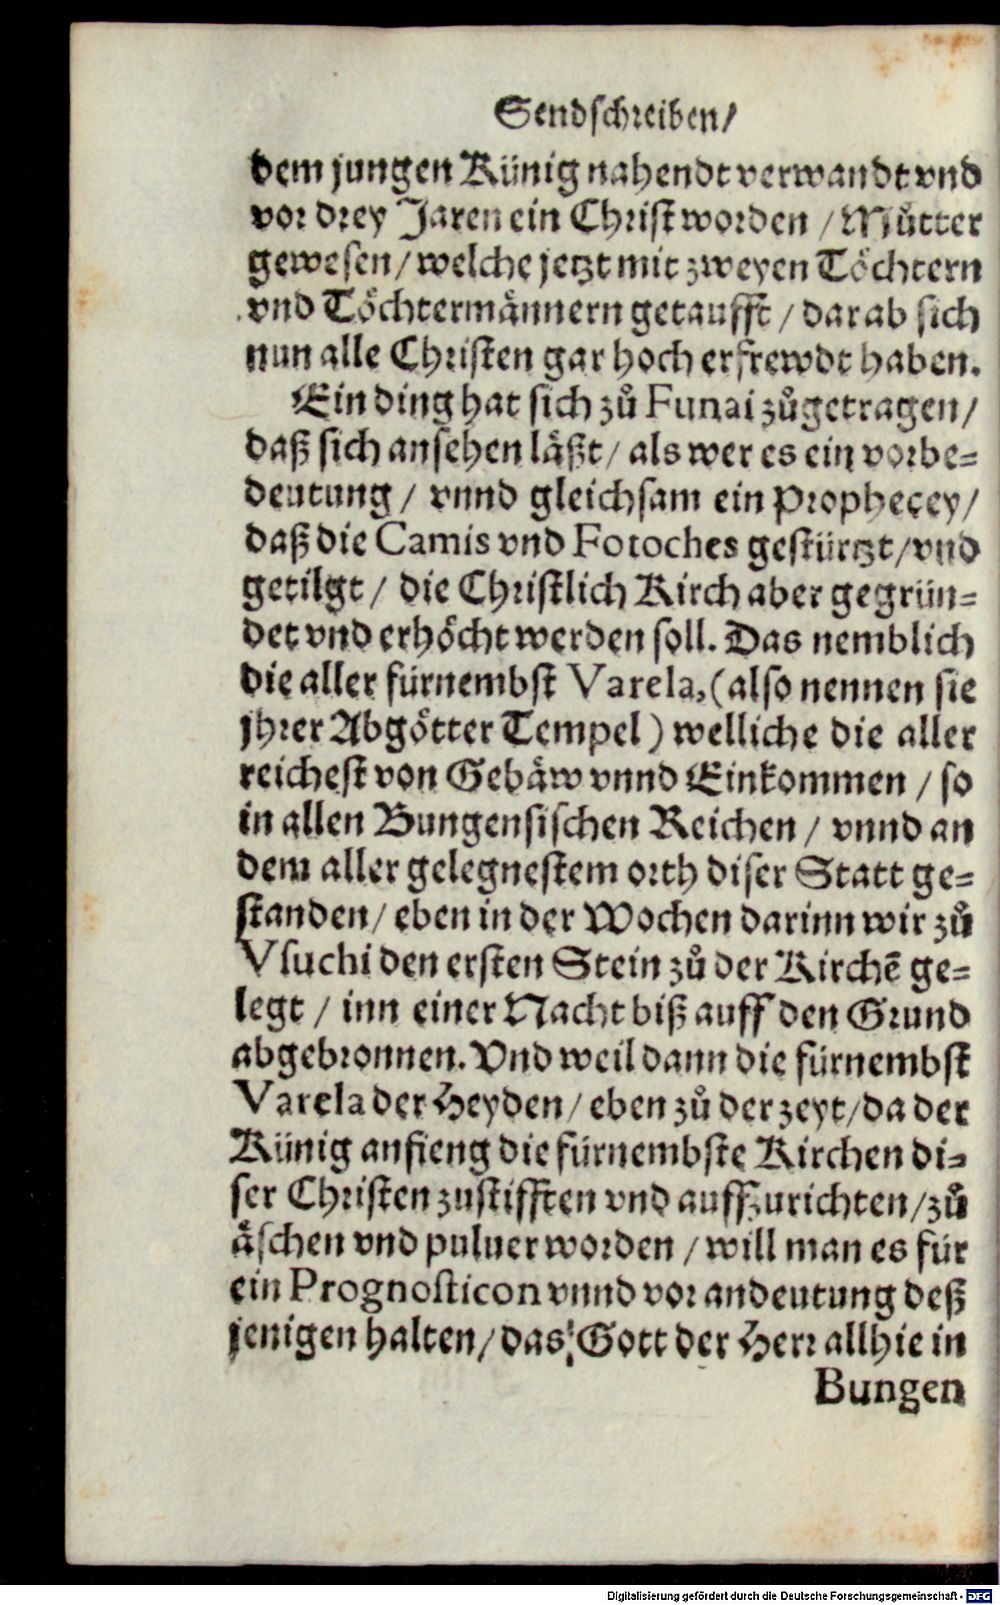 Sendschreiben/
dem jungen Künig nahendt verwandt vnd
vor drey Jaren ein Christ worden / Můtter
gewesen / welche jetzt mit zweyen Töchtern
vnd Töchtermännern getaufft / darab sich
nun alle Christen gar hoch erfrewdt haben.
Ein ding hat sich zů Funai zůgetragen /
daß sich ansehen läßt / als wer es ein vorbe=
deutung / vnnd gleichsam ein Prophecey /
daß die Camis vnd Fotoches gestürtzt / vnd
getilgt / die Christlich Kirch aber gegrün=
det vnd erhöcht werden soll. Das nemblich
die aller fürnembst Varela, (also nennen sie
jhrer Abgötter Tempel) welliche die aller
reichest von Gebäw vnnd Einkommen / so
in allen Bungensischen Reichen / vnnd an
dem aller gelegnestem orth diser Statt ge=
standen / eben in der Wochen darinn wir zů
Vsuchi den ersten Stein zů der Kirchē ge=
legt / inn einer Nacht biß auff den Grund
abgebronnen. Vnd weil dann die fürnembst
Varela der Heyden / eben zů der zeyt / da der
Künig anfieng die fürnembste Kirchen di=
ser Christen zustifften vnd auffzurichten / zů
äschen vnd puluer worden / will man es für
ein Prognosticon vnnd vor andeutung deß
jenigen halten / das Gott der Herr allhie in
Bungen
Digitalisierung gefördert durch die Deutsche Forschungsgemeinschaft - DFG